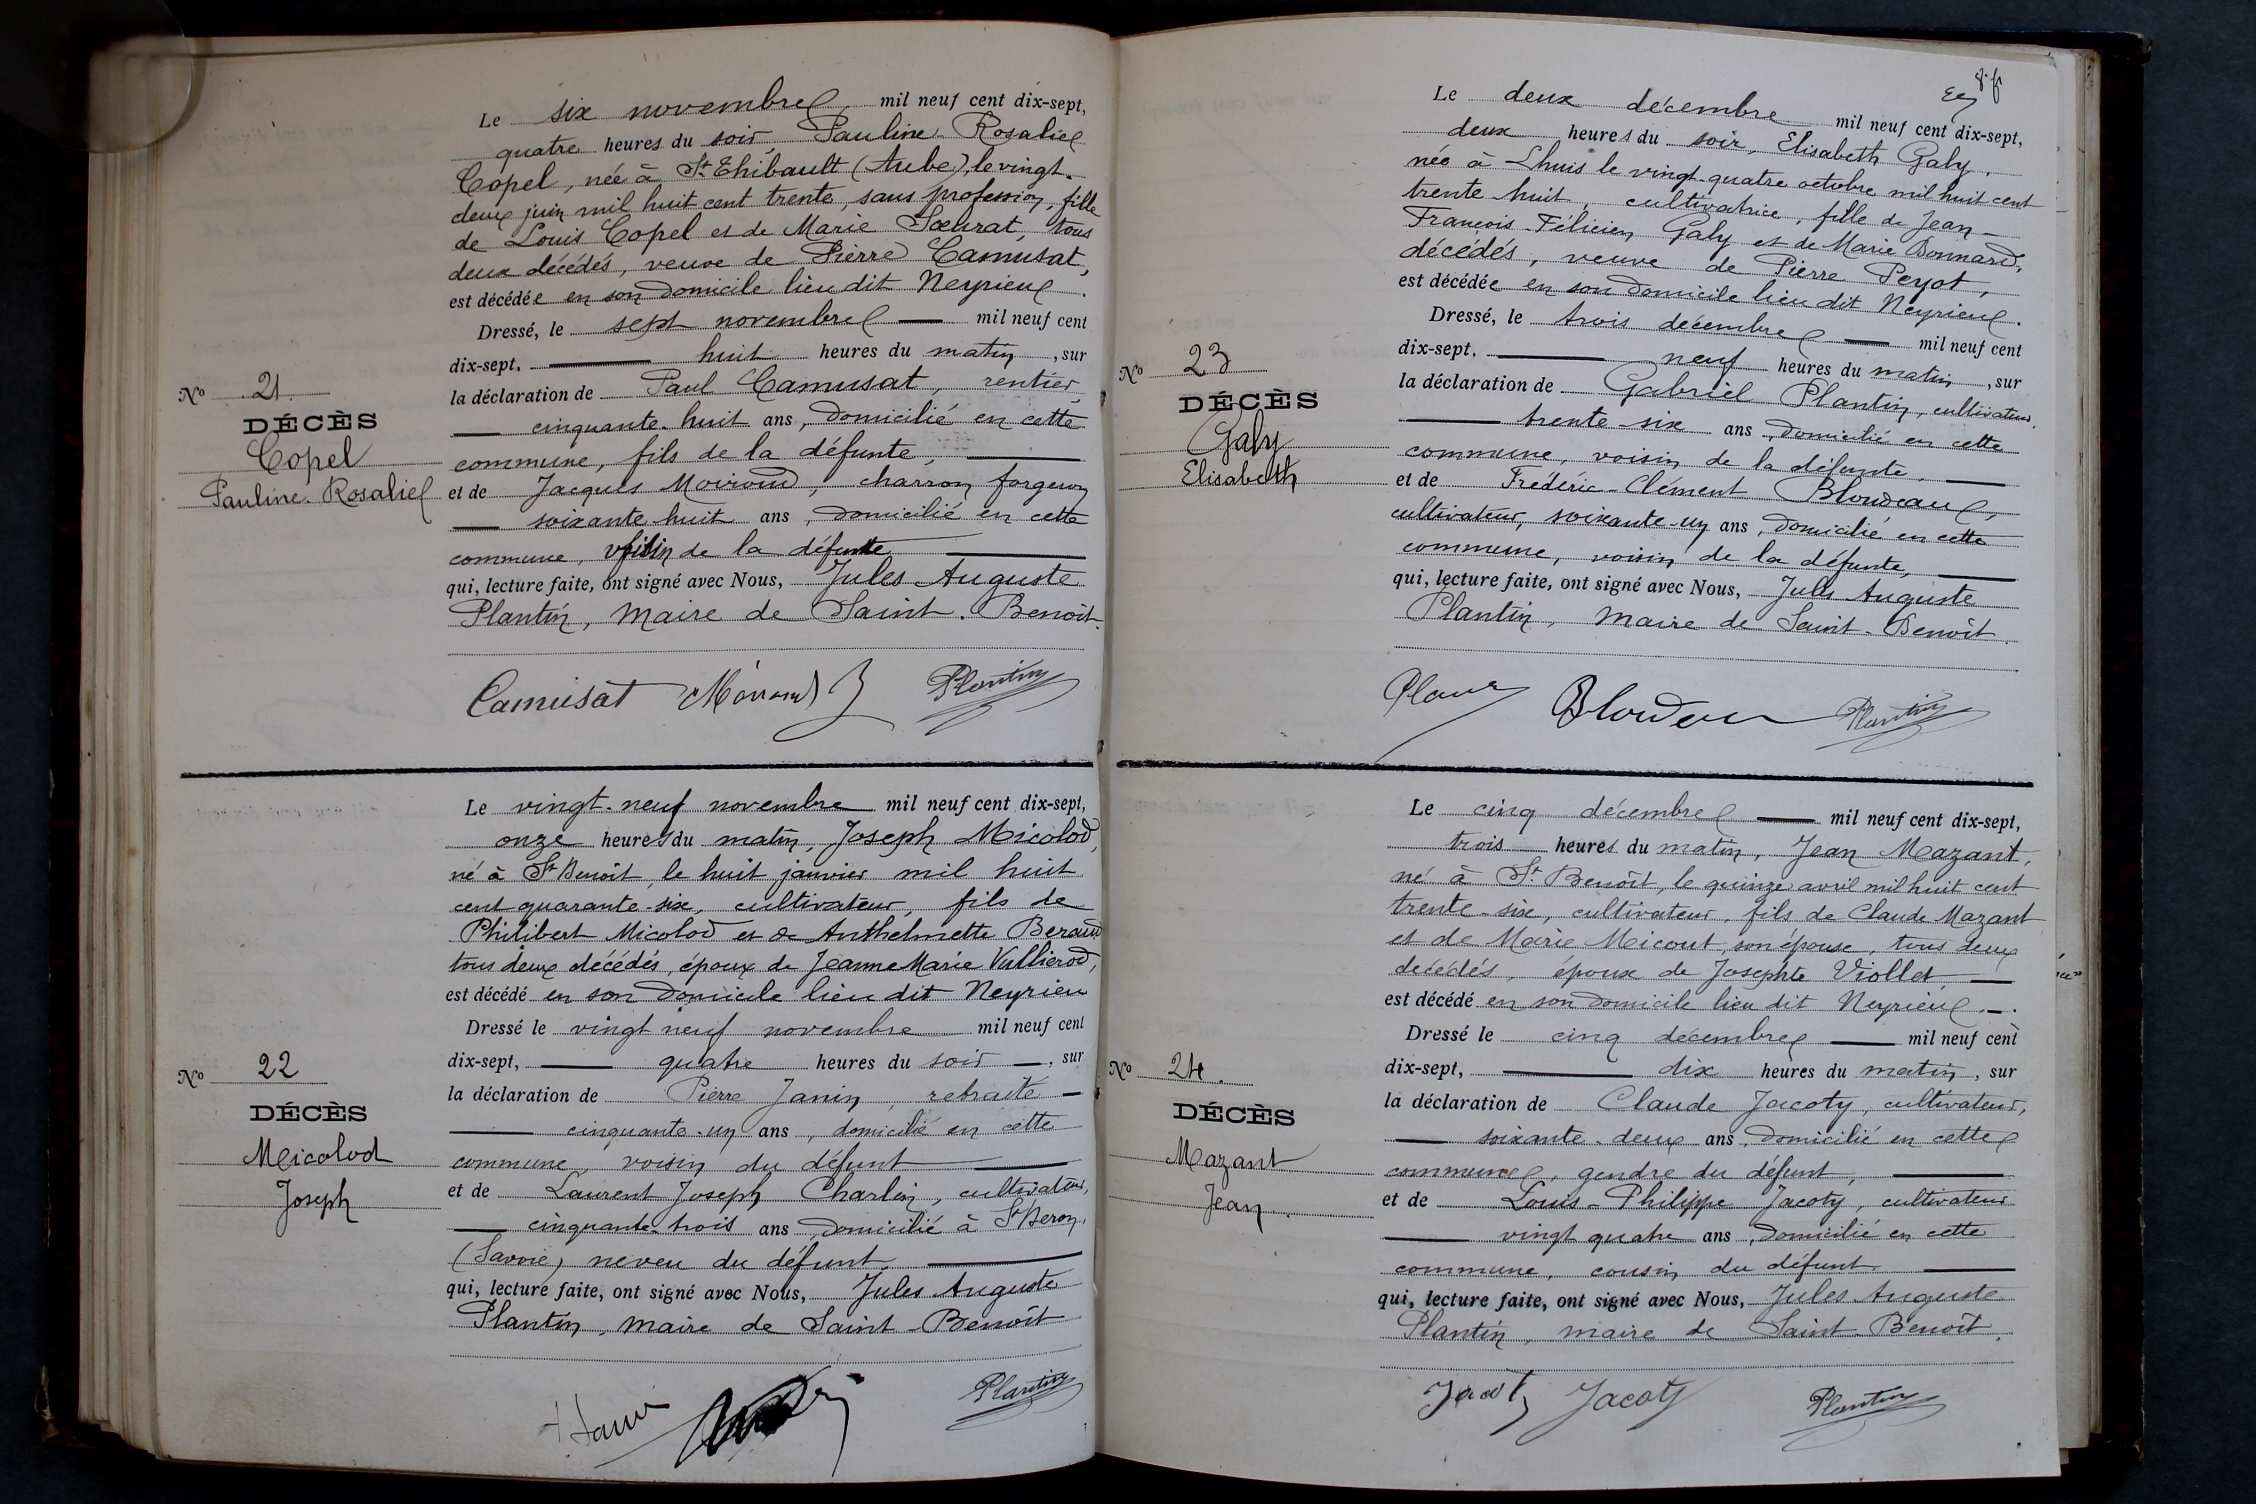 Le six novembre mil neuf cent dix-sept,
quatre heures du soir, Pauline Rosalie
Copel, née à St Thibault (Aube), le vingt-
deux juin mil huit cent trente, sans profession, fille
de Louis Copel et de Marie Sœurat, tous
deux décédés, veuve de Pierre Camusat,
est décédée en son domicile lieu dit Neyrieu.
Dressé, le sept novembre — mil neuf cent
dix-sept, — huit heures du matin, sur
la déclaration de Paul Camusat, rentier,
— cinquante-huit ans, domicilié en cette
commune, fils de la défunte, —
et de Jacques Moiroud, charron forgeron
— soixante-huit ans, domicilié en cette
commune, voisin de la défunte —
qui, lecture faite, ont signé avec Nous, Jules Auguste
Plantin, Maire de Saint-Benoît.
Camusat Moiroud Plantin
No 21.
DÉCÈS
Copel
Pauline Rosalie
Le vingt-neuf novembre mil neuf cent dix-sept,
onze heures du matin, Joseph Micolod,
né à St Benoît, le huit janvier mil huit
cent quarante-six, cultivateur, fils de
Philibert Micolod et de Anthelmette Beraud
tous deux décédés, époux de Jeanne Marie Vallierod,
est décédé en son domicile lieu dit Neyrieu
Dressé le vingt neuf novembre mil neuf cent
dix-sept, — quatre heures du soir —, sur
la déclaration de Pierre Janin, retraité —
— cinquante-un ans, domicilié en cette
commune, voisin du défunt —
et de Laurent Joseph Charlin, cultivateur,
— cinquante-trois ans domicilié à St Beron,
(Savoie) neveu du défunt, —
qui, lecture faite, ont signé avec Nous, Jules Auguste
Plantin, maire de Saint-Benoît
Plantin
No 22
DÉCÈS
Micolod
Joseph
Le deux décembre mil neuf cent dix-sept,
deux heures du soir, Elisabeth Galy,
née à Lhuis le vingt-quatre octobre mil huit cent
trente-huit, cultivatrice, fille de Jean-
François-Félicien Galy et de Marie Bonnard,
décédés, veuve de Pierre Peyot,
est décédée en son domicile lieu dit Neyrieu.
Dressé, le trois décembre — mil neuf cent
dix-sept, — neuf heures du matin, sur
la déclaration de Gabriel Plantin, cultivateur,
— trente-six ans, domicilié en cette
commune, voisin de la défunte, —
et de Frédéric-Clément Blondeau,
cultivateur, soixante-un ans, domicilié en cette
commune, voisin de la défunte, —
qui, lecture faite, ont signé avec Nous, Jules Auguste
Plantin, Maire de Saint-Benoît.
Blondeau Plantin
No 23
DÉCÈS
Galy
Elisabeth
Le cinq décembre — mil neuf cent dix-sept,
trois heures du matin, Jean Mazant,
né à St. Benoît, le quinze avril mil huit cent
trente-six, cultivateur, fils de Claude Mazant
et de Marie Micout, son épouse, tous deux
décédés, époux de Josephte Viollet, —
est décédé en son domicile lieu dit Neyrieu. —.
Dressé le cinq décembre — mil neuf cent
dix-sept, — dix heures du matin, sur
la déclaration de Claude Jacoty, cultivateur,
— soixante-deux ans, domicilié en cette
commune, gendre du défunt, —
et de Louis-Philippe Jacoty, cultivateur
— vingt quatre ans, domicilié en cette
commune, cousin du défunt —
qui, lecture faite, ont signé avec Nous, Jules Auguste
Plantin, maire de Saint-Benoît.
Jacoty Jacoty Plantin
No 24.
DÉCÈS
Mazant
Jean.